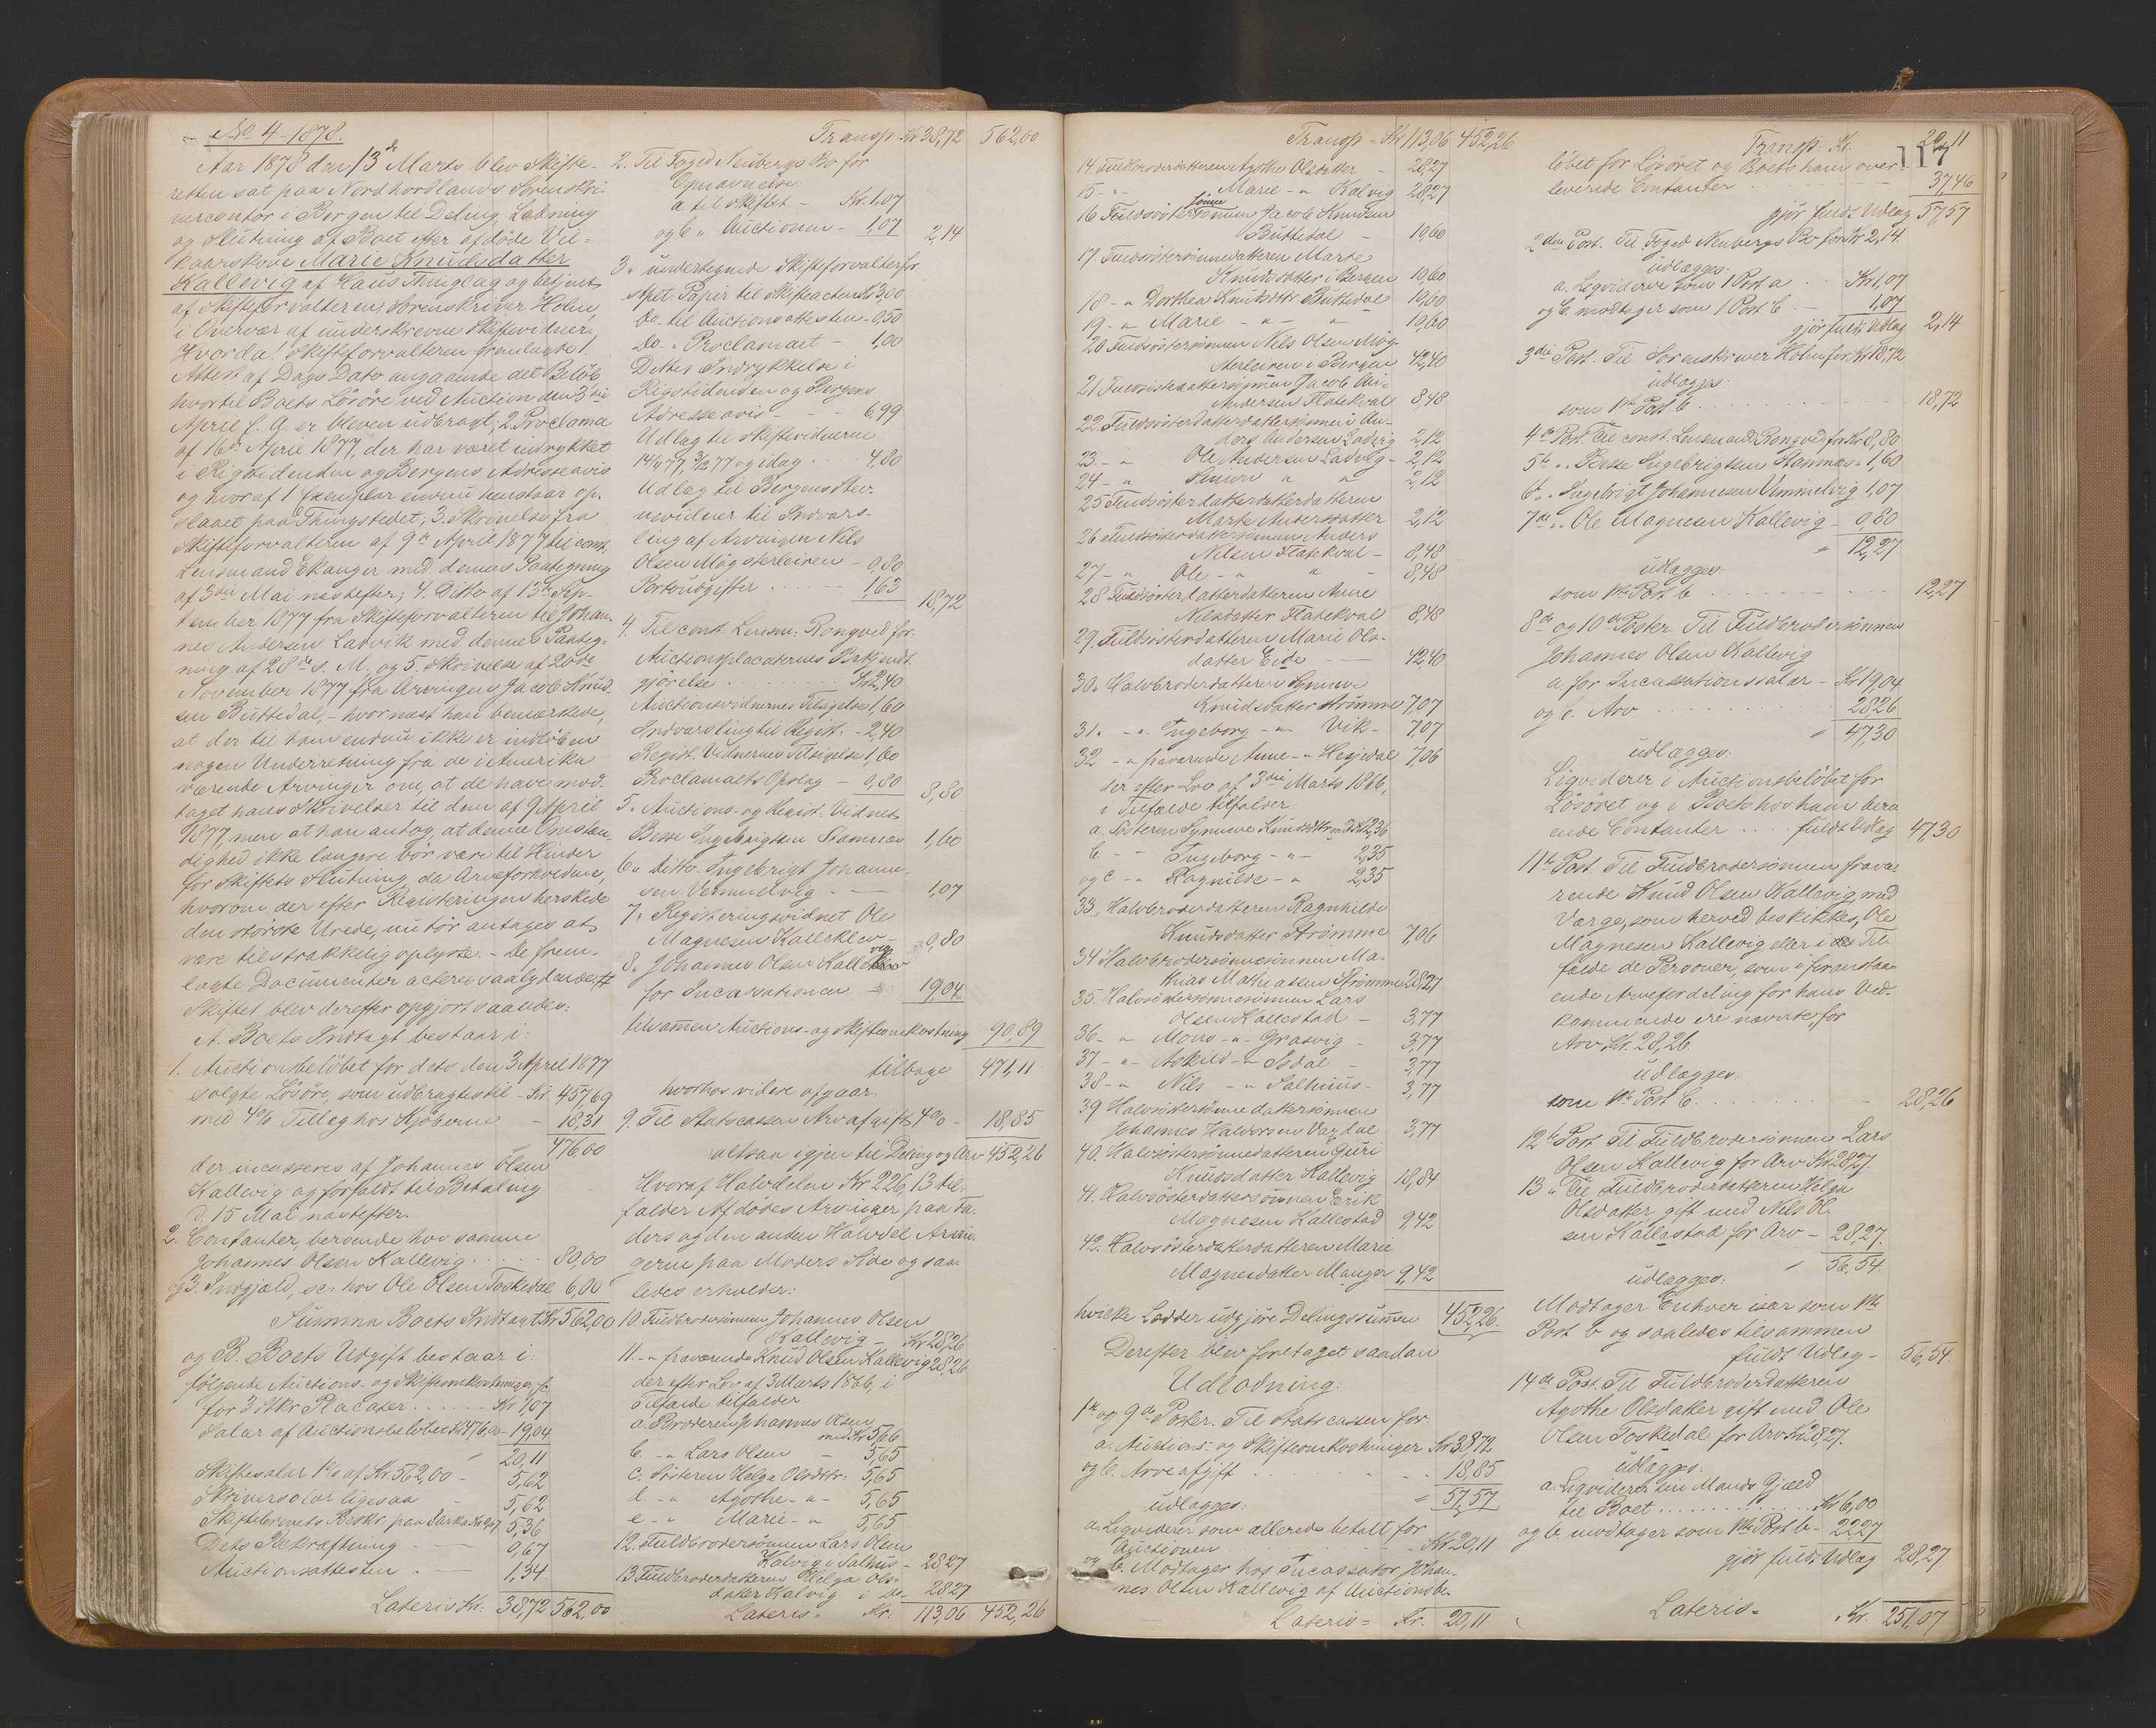 No 4 - 1878.
Aar 1878 den 13de Marts blev Skifte-
retten sat paa Nordhordlands Sorenskri-
vercontor i Bergen til Deling, Lodning
og Slutning af Boet efter afdøde Vil-
kaarskone Marie Knudsdatter
Kallevig af Haus Thinglag og betjent
af Skifteforvalteren, Sorenskriver Holm,
i Overvær af underskrevne Skiftevidner.
Hvorda! Skifteforvalteren fremlagde 1.
Attest af Dags Dato angaaende det Beløb
hvortil Boets Løsøre ved Auction den 3die
April f. A. er bleven udbragt; 2. Proclama
af 16de April 1877, der har været indrykket
i Rigstidenden og Bergens Adresseavis
og hvoraf 1 Exemplar endnu henstaar op-
slaaet paa Thingstedet; 3. Skrivelse fra
Skifteforvalteren af 9de April 1877 til const.
Lensmand Ekanger med dennes Paategning
af 3die Mai næstefter; 4. Ditto af 13de Sep-
tember 1877 fra Skifteforvalteren til Johan-
nes Andersen Ladvik med dennes Paateg-
ning af 28de s. M. og 5. Skrivelse af 20de
November 1877 fra Arvingen Jacob Knud-
sen Buttedal, - hvornæst han bemærkede,
at der til ham endnu ikke er indløben
nogen Underretning fra de i Amerika
værende Arvinger om, at de have mod-
taget hans Skrivelser til dem af 9 April
1877, men at han antog, at denne Omstæn-
dighed ikke længere bør være til Hinder
for Skiftets Slutning, da Arveforholdene,
hvorom der efter Registreringen herskede
den største Urede, nu tør antages at
være tilstrækkelig oplyste. - De frem-
lagte Documenter acteres saalydende: #
Skiftet blev derefter opgjort saaledes:
A. Boets Indtægt bestaar i:
1. Auctionsbeløbet for dets den 3 April 1877
solgte Løsøre, som udbragtes til - Kr 457,69
med 4% Tillæg hos Kjøberne - 18,31
476,00
der incasseres af Johannes Olsen
Kallevig og forfaldt til Betaling
d. 15 Mai næstefter.
2. Contanter, beroende hos samme
Johannes Olsen Kallevig . . . 80,00
og 3. Indgjæld, sc: hos Ole Olsen Toskedal 6,00
Summa Boets Indtægt Kr 562,00
og B. Boets Udgift bestaar i:
følgende Auctions- og Skifteomkostninger, sc.
for 3 Stkr Placater . . . Kr 1,07
Salær af Auctionsbeløbet Kr 476,00 - 19,04
20,11
Skiftesalær 1% af Kr. 562,00 - 5,62
Skriversalær ligesaa - 5,62
Skiftebrevets Beskr. paa 5,36
Dets Bekræftning - 0,67
Auctionsattesten - 1,34
Lateris Kr: 38,72 562,00
Transp. Kr 38,72 562,00
2. Til Foged Neubergs Bo for
Opnævnelse:
a til Skiftet - Kr. 1,07
og b " Auctionen - 1,07 2,14
3 " undertegnede Skifteforvalter for
stpet Papir til Skifteacten Kr 3,00
Do. til Auctionsattesten - 0,50
Do. " Proclamaet - 1,00
Dettes Indrykkelse i
Rigstidenden og Bergens
Adresseavis - 6,99
Udlæg til Skiftevidnerne
14/4 77, 3/12 77 og idag . . . 4,80
Udlæg til Bergens Stev-
nevidner til Indvars-
ling af Arvingen Nils
Olsen Møgsterleiren - 0,80
Portoudgifter . . . 1,63 18,72
4. Til const. Lensm: Rongved for:
Auctionsplacaternes Bekjendt-
gjørelse . . . Kr 2,40
Auctionsvidnernes Tilsigelse 1,60
Indvarsling til Regist. - 2,40
Regist. Vidnernes Tilsigelse 1,60
Proclamaets Opslag - 0,80 8,80
5. Auctions- og Regist. Vidnet
Besse Ingebrigtsen Stamnes 1,60
6 " Ditto Ingebrigt Johanne-
sen Vemmelvig - 1,07
7 " Registreringsvidnet Ole
Magnesen Kallevig - 0,80
8. Johannes Olsen Kallevig
for Incassationen - 19,04
tilsammen Auctions- og Skifteomkostning 90,89
tilbage 471,11
hvorhos videre afgaar.
9. Til Statscassen Arveafgift 4% - 18,85
altsaa igjen til Deling og Arv 452,26
Hvoraf Halvdelen Kr 226,13 til-
falder Afdødes Arvinger paa Fa-
ders og den anden Halvdel Arvin-
gerne paa Moders Side og saa-
ledes erholder:
10. Fuldbrodersønnen Johannes Olsen
Kallevig - Kr 28,26
11. - " fraværende Knud Olsen Kallevig 28,26
der efter Lov af 3 Marts 1866, i
Tilfælde tilfalder
a. Broderen Johannes Olsen
med Kr 5,66
b. - " Lars Olsen - 5,65
c. Søsteren Helga Olsdttr: 5,65
d. - " Agothe - " - 5,65
e - " Marie - " 5,65
12. Fuldbrodersønnen Lars Olsen
Kalvig i Salhus - 28,27
13. Fuldbroderdatteren Helga Ols-
datter Kalvig i do. 28,27
Lateris - Kr: 113,06 452,26
Transp - Kr 113,06 452,26
14. Fuldbroderdatteren Agothe Olsdatter - 28,27
15 - " Marie - " Kalvig 28,27
16 Fuldsøstersønnesønnen Jacob Knudsen
Buttedal - 10,60
17. Fuldsøstersønnedatteren Marte
Knudsdatter i Bergen 10,60
18 - " Dorthea Knudsdttr Buttedal 10,60
19 - " Marie - " - " 10,60
20 Fuldsøstersønnen Nils Olsen Møg-
sterleiren i Bergen 42,40
21 Fuldsøsterdattersønnen Jacob
Andersen Flatekval 8,48
22. Fuldsøsterdatterdattersønnen An-
ders Andersen Ladvig 2,12
23. - " Ole Andersen Ladvig - 2,12
24 - " Simon " " 2,12
25 Fuldsøsterdatterdatterdatteren
Marte Andersdatter 2,12
26 Fuldsøsterdattersønnen Anders
Nilsen Flatekval - 8,48
27 - " Ole - " " - 8,48
28 Fuldsøsterdatterdatteren Anne
Nilsdatter Flatekval 8,48
29. Fuldsøsterdatteren Marie Ols-
datter Eide - 42,40
30 " Halvbroderdatteren Synneve
Knudsdatter Strømme 7,07
31. - " Ingeborg - " Vik - 7,07
32 - " fraværende Anne - " Hesjedal 7,06
der efter Lov af 3die Marts 1866,
i Tilfælde tilfalder
a. Søsteren Synneve Knudsdttr med Kr 2,36
b - - Ingeborg - " - 2,35
og c - " Ragnilde - " 2,35
33. Halvbroderdatteren Ragnhilde
Knudsdatter Strømme 7,06
34 Halvbrodersønnesønnen Ma-
thias Mathiasen Strømme 28,27
35. Halvsøstersønnesønnen Lars
Olsen Kallestad - 3,77
36 - " Mons - " Grasvig - 3,77
37 - " Askild - " Isdal - 3,77
38 - " Nils - " Salhuus - 3,77
39 Halvsøstersønnedattersønnen
Johannes Haldorsen Vardal 3,77
40. Halvsøstersønnedatteren Guri
Knudsdatter Kallevig 18,84
41. Halvsøsterdattersønnen Erik
Magnesen Kallestad 9,42
42. Halvsøsterdatterdatteren Marie
Magnesdatter Manger 9,42
hvilke Lodder udgjøre Delingssummen 452,26.
Derefter blev foretaget saadan
Udlodning:
1ste og 9de Poster. Til Statscassen for:
a. Auctions- og Skifteomkostninger Kr 38,72
og b. Arveafgift . . . 18,85
57,57
udlægges:
a. Liqviderer som allerede betalt for
Auctionen . . . Kr 20,11
og b. Modtager hos Incassator Johan-
nes Olsen Kallevig af Auctionsbe-
Lateris = Kr. 20,11
Transp: Kr. 20,11
117
løbet for Løsøret og Boets ham over-
leverede Contanter . . . 37,46
gjør fuldt Udlæg 57,57
2den Post. Til Foged Neubergs Bo for Kr 2,14.
udlægges:
a. Liqviderer som 1 Post a . . Kr 1,07
og b. modtager som 1 Post b - 1,07
gjør fuldt Udlæg 2,14
3die Post. Til Sorenskriver Holm for Kr 18,72
udlægges:
som 1ste Post b . . . 18,72
4de Post. Til const. Lensmand Rongved for Kr 8,80
5te " . Besse Ingebrigtsen Stamnes - 1,60
6te " . Ingebrigt Johannesen Vemmelvig 1,07
7de " . Ole Magnesen Kallevig - 0,80
12,27
udlægges:
som 1ste Post b . . . 12,27
8de og 10de Poster. Til Fuldbrodersønnen
Johannes Olsen Kallevig
a. for Incassationssalær - Kr 19,04
og b. Arv . . . 28,26
47,30
udlægges:
Liqviderer i Auctionsbeløbet for
Løsøret og i Boets hos ham bero-
ende Contanter . . . fuldt Udlæg 47,30
11te Post. Til Fuldbrodersønnen fravæ-
rende Knud Olsen Kallevig med
Værge, som herved beskikkes, Ole
Magnesen Kallevig eller i Til-
fælde de Personer, som i foranstaa-
ende Arvefordeling for hans Ved-
kommende ere nævnte, for
Arv Kr. 28,26.
udlægges:
som 1ste Post b . . . 28,26
12te Post. Til Fuldbrodersønnen Lars
Olsen Kallevig for Arv Kr 28,27.
13 " Til Fuldbroderdatteren Helga
Olsdatter, gift med Nils Ol-
sen Kallestad for Arv - 28,27.
56,54.
udlægges:
Modtager Enhver især som 1ste
Post b og saaledes tilsammen
fuldt Udlæg - 56,54.
14de Post. Til Fuldbroderdatteren
Agothe Olsdatter gift med Ole
Olsen Toskedal for Arv Kr 28,27.
udlægges:
a. Liqviderer sin Mands Gjæld
til Boet . . . Kr 6,00
og b. modtager som 1ste Post b - 22,27
gjør fuldt Udlæg 28,27
Lateris = Kr. 251,07